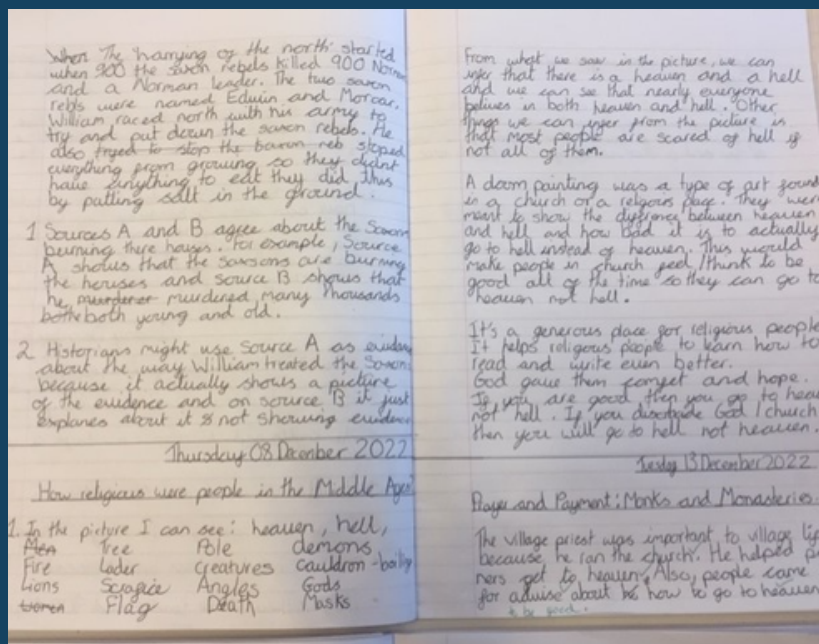 When The harrying of the north started
when 900 the saxon rebels killed 900 Norman
and a Norman leader. The two saxon
rebls were named Edwin and Morcar.
William raced north with his army to
try and put down the saxon rebels. He
also tryed to stop the baron reb stoped
everything from growing so they didnt
have anything to eat they did this
by putting salt in the ground.
1 Sources A and B agree about the Saxons
burning there houses. For example, Source
A shows that the saxsons are burning
the houses and source B shows that
he murderer murdered many thousands
both both young and old.
2 Historians might use Source A as evidence
about the way William treated the Saxons
because it actually shows a picture
of the evidence and on source B it just
explanes about it & not showing evidence
Thursday 08 December 2022
How religious were people in the Middle Ages?
1. In the picture I can see: heaven, hell,
Men Tree Pole demons
Fire Lader creatures cauldron-boiling
Lions Angles Gods
women Flag Death Masks
From what we saw in the picture, we can
infer that there is a heaven and a hell
and we can see that nearly everyone
belives in both heaven and hell. Other
things we can infer from the picture is
that most people are scared of hell if
not all of them.
A doom painting was a type of art found
in a church or a relgious place. They were
meant to show the between heaven
and hell and how bad it is to actually
go to hell instead of heaven. This would
make people in church feel/think to be
good all of the time so they can go to
heaven not hell.
It's a generous place for religious people
It helps religous people to learn how to
read and write even better.
God gave them and hope.
If you are good then you go to
not hell. If you God/church
then you will go to hell not heaven.
Tuesday 13 December 2022
Prayer and Payment: Monks and Monasteries
The village priest was important to village
because he ran the church. He helped
ners get to heaven. Also, people came
for advise about be how to go to heaven
to be good.